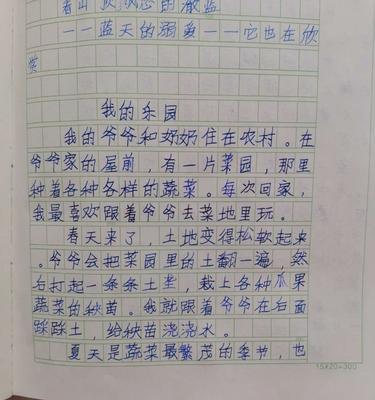 ——蓝天的溺爱——它也在欣
赏
我的乐园
我的爷爷和奶奶住在农村。在
爷爷家的屋前，有一片菜园，那里
种着各种各样的蔬菜。每次回家，
我最喜欢跟着爷爷去菜地里玩。
春天来了，土地变得松软起来
。爷爷会把菜园里的土翻一遍，然
后打起一条条土垄，栽上各种瓜果
蔬菜的秧苗。我就跟着爷爷在后面
踩踩土，给秧苗浇浇水。
夏天是蔬菜最繁茂的季节，也
15×20=300